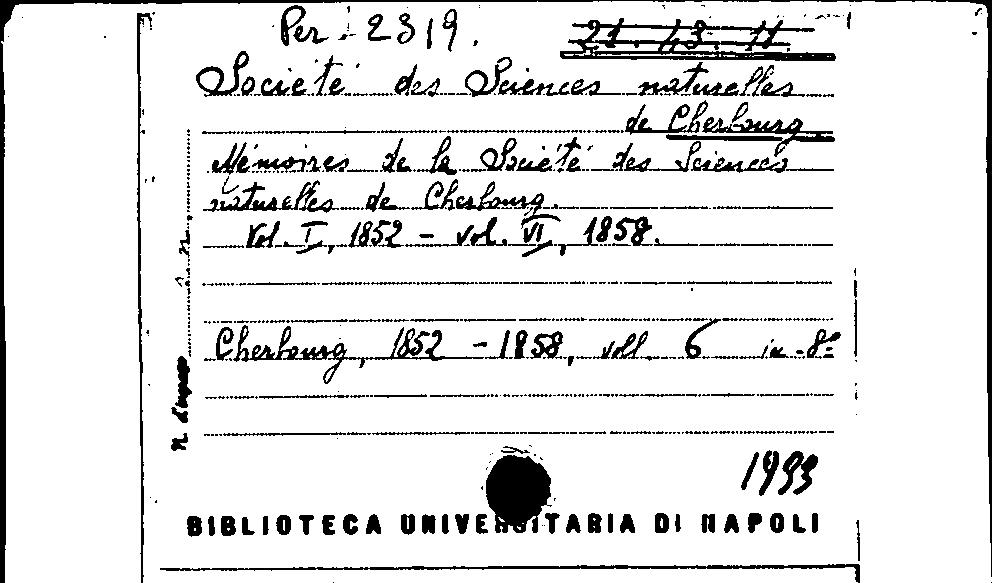 Per. 2319. 21. 43. 11.
Société des Sciences naturelles
de Cherbourg.
Mémoires de la Société des Sciences
naturelles de Cherbourg.
Vol. I, 1852 - vol. VI, 1858.
Cherbourg, 1852 - 1858, voll. 6 in-8º
N. d'ingresso
1993
BIBLIOTECA UNIVERSITARIA DI NAPOLI